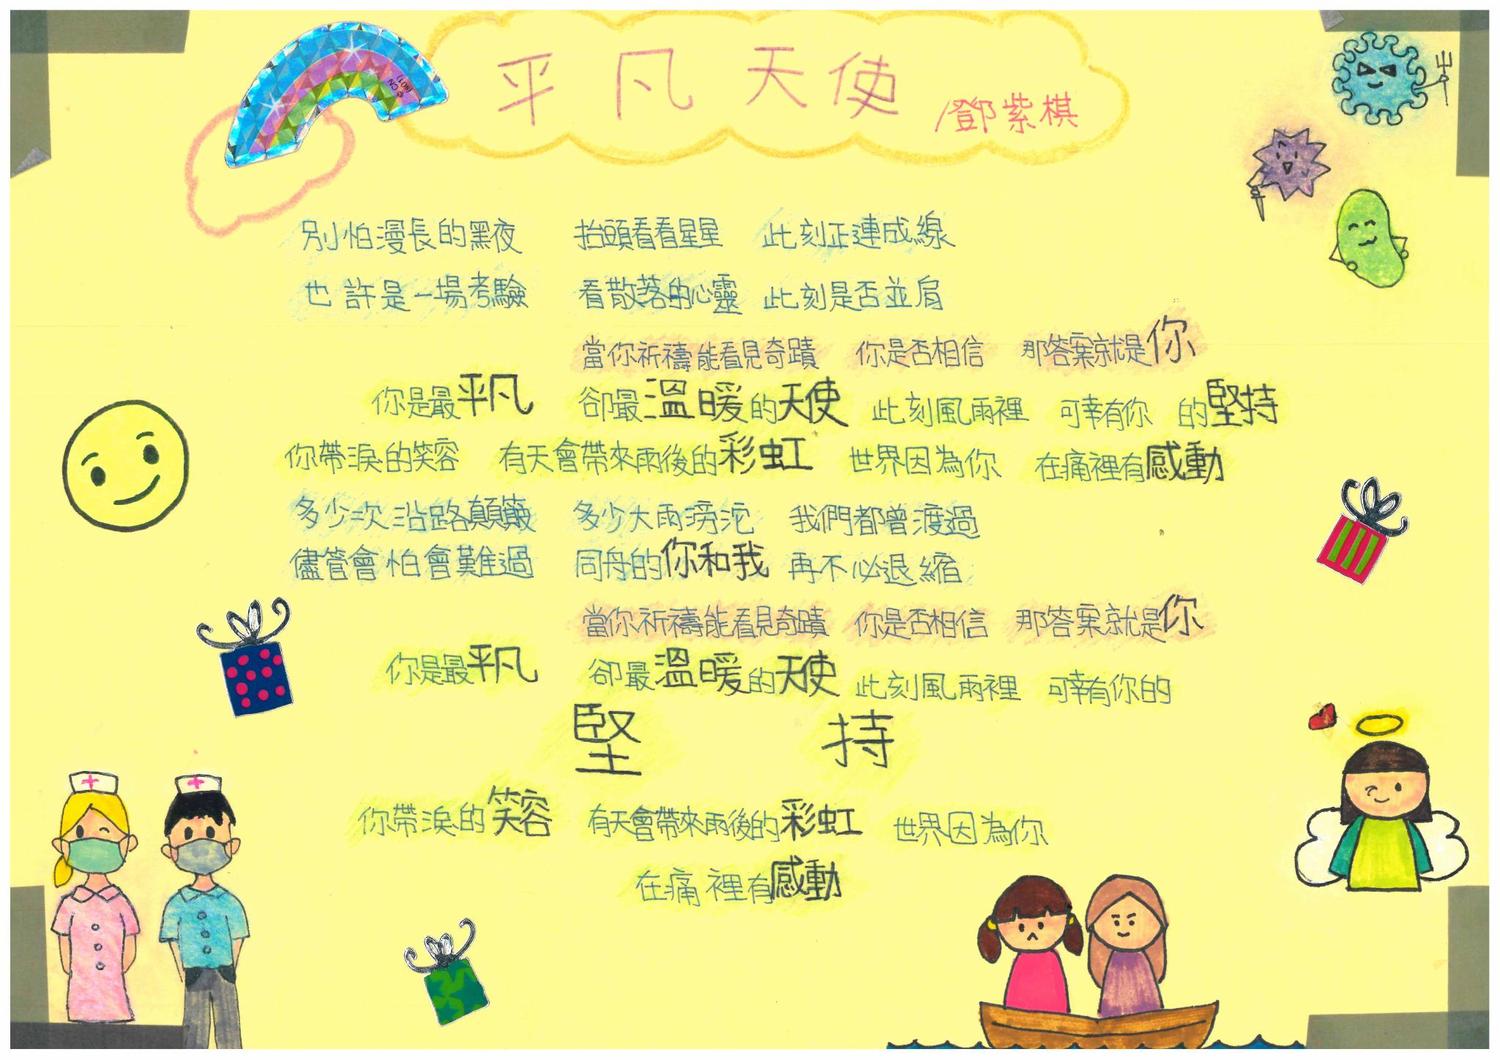 平凡天使 /鄧紫棋
別怕漫長的黑夜 抬頭看看星星 此刻正連成線
也許是一場考驗 看散落的心靈 此刻是否並肩
當你祈禱能看見奇蹟 你是否相信 那答案就是你
你是最平凡 卻最溫暖的天使 此刻風雨裡 可幸有你 的堅持
你帶淚的笑容 有天會帶來雨後的彩虹 世界因為你 在痛裡有感動
多少次沿路顛簸 多少大雨滂沱 我們都曾渡過
儘管會怕會難過 同舟的你和我 再不必退縮
當你祈禱能看見奇蹟 你是否相信 那答案就是你
你是最平凡 卻最溫暖的天使 此刻風雨裡 可幸有你的
堅 持
你帶淚的笑容 有天會帶來雨後的彩虹 世界因為你
在痛裡有感動